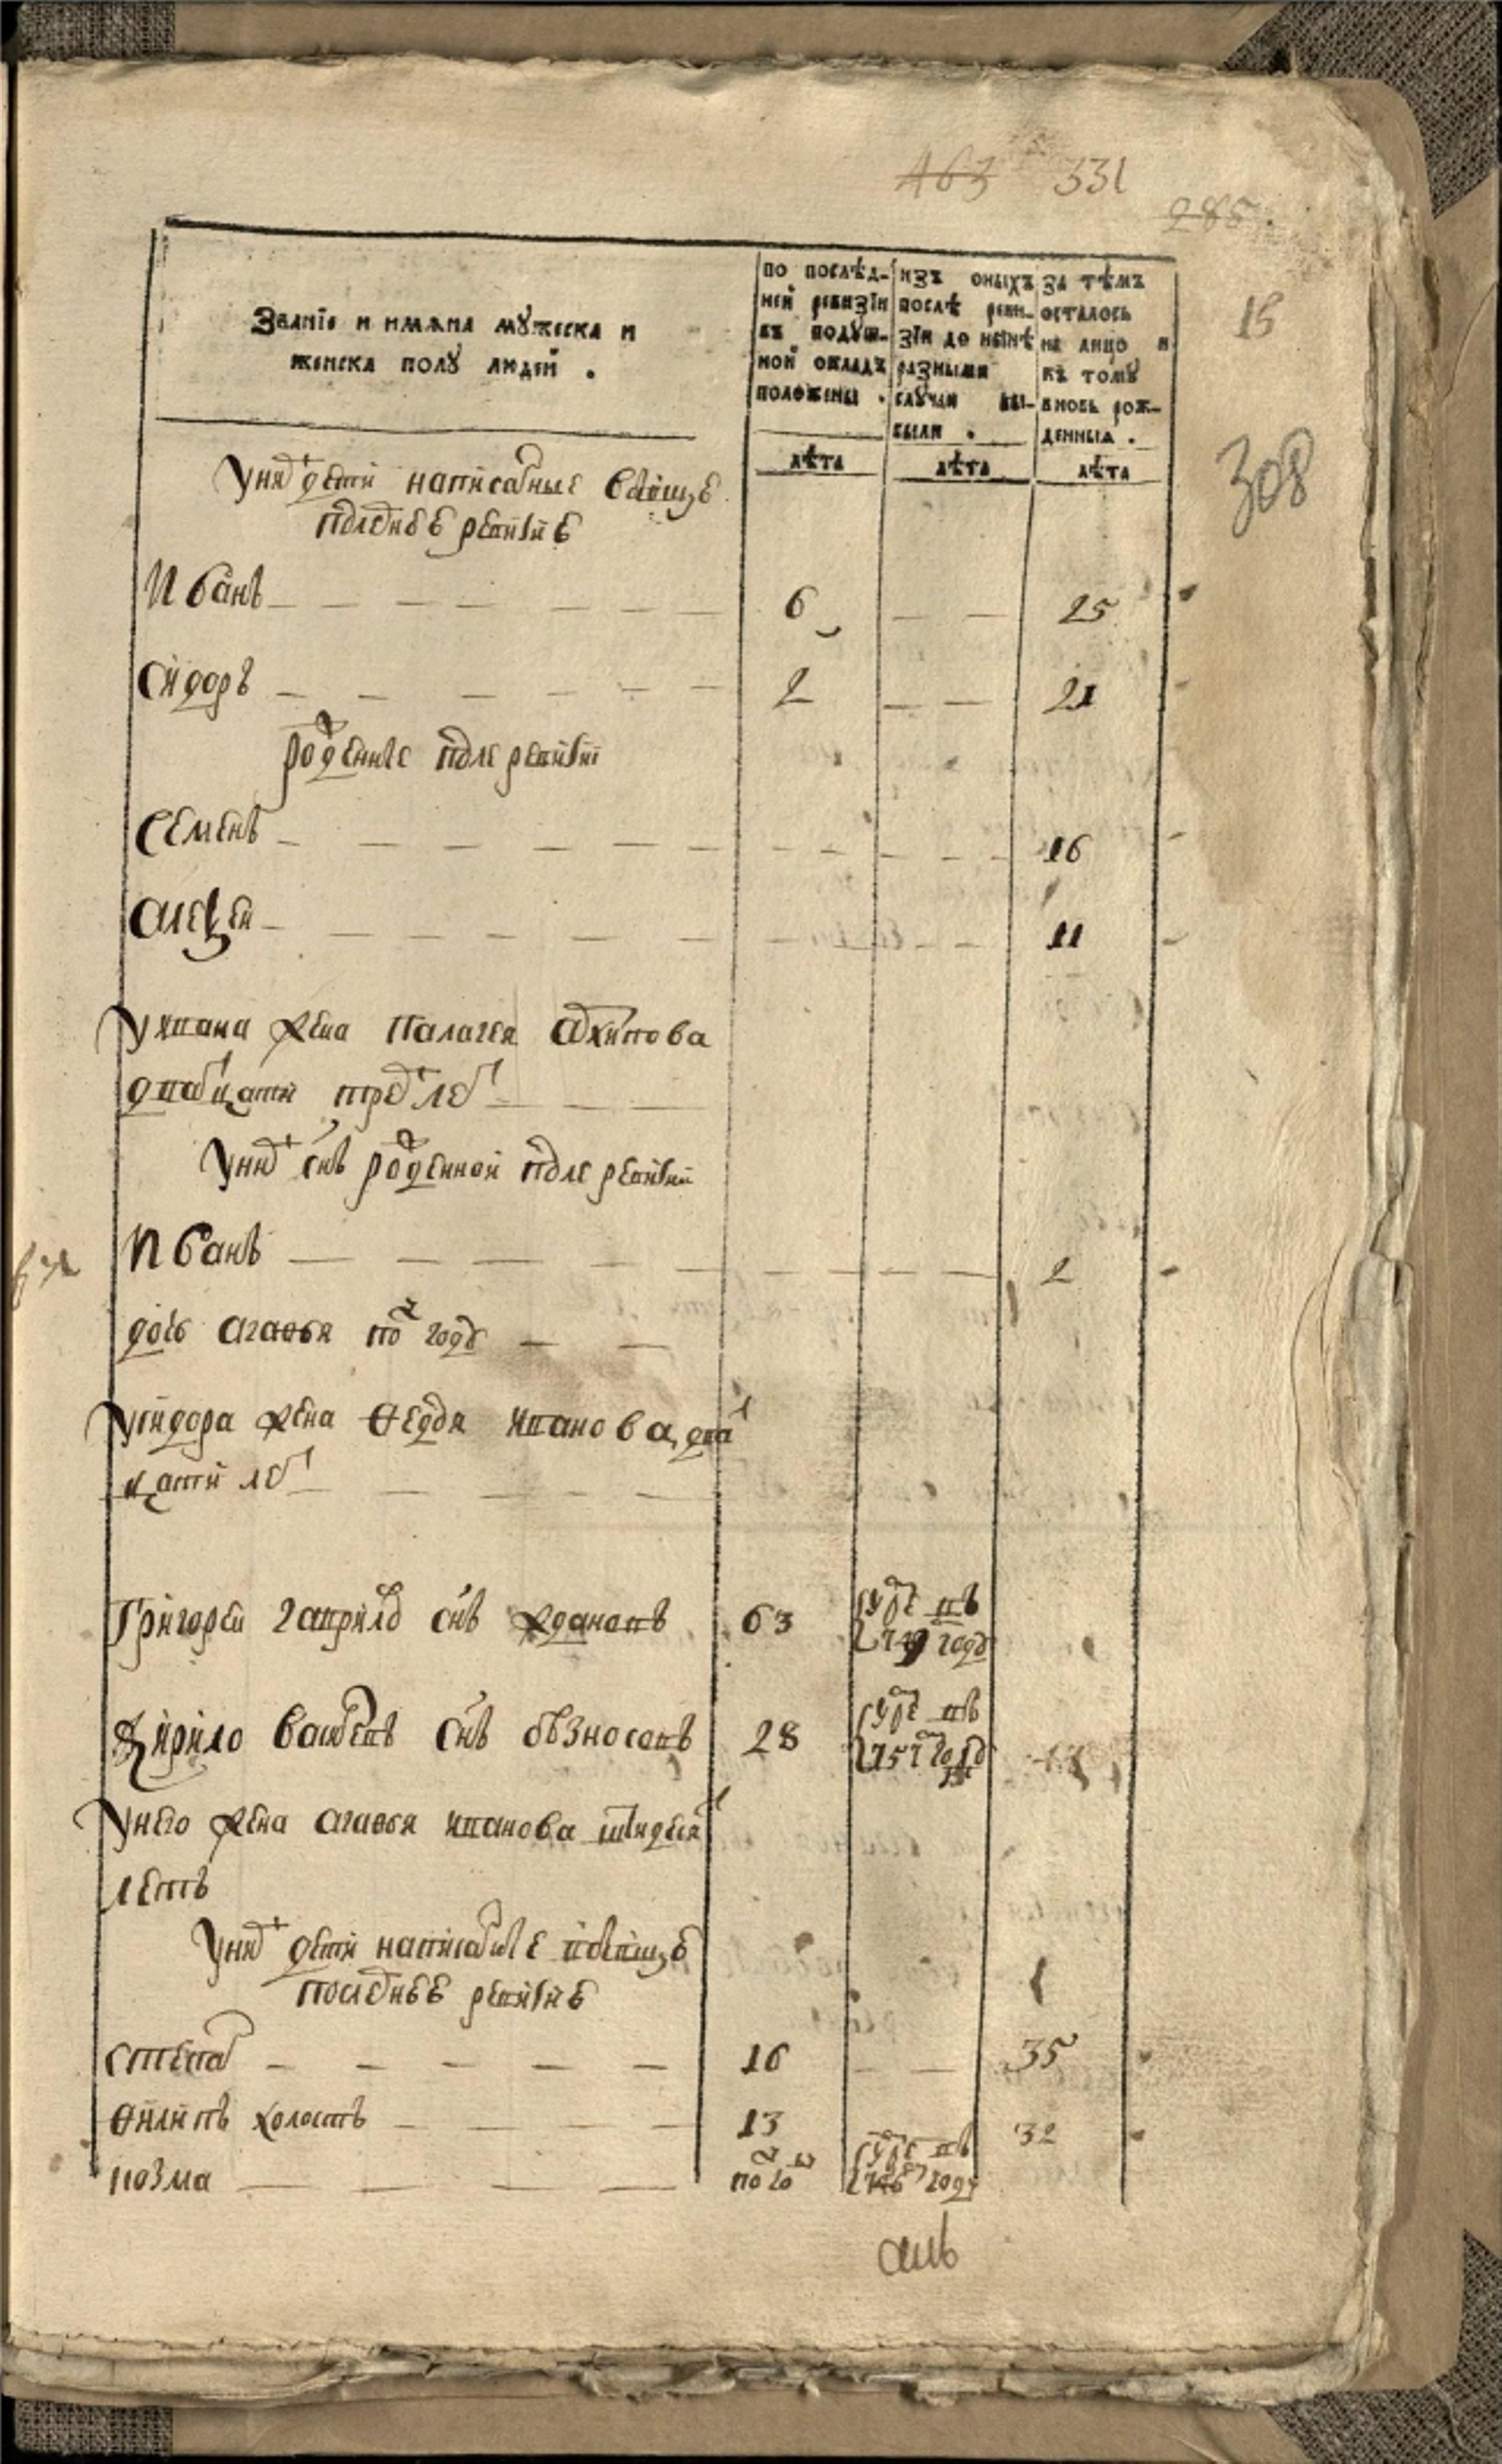 463 331
285
15
308
Званїе и имѧна мꙋжеска и
женска полꙋ людей .
по послѣд-
ней ревизїи
въ подꙋш-
ной окладъ
положены .
лѣта
изъ оныхъ
послѣ реви-
зїи до нынѣ
разными
слꙋчаи вы-
были .
лѣта
за тѣмъ
осталось
на лицо и
къ томꙋ
вновь рож-
денныя .
лѣта
У них дети написанные
последнее ревизие
Иванъ 6 25
Сидоръ 2 21
роденные после ревизии
Семенъ 16
Алеѯей 11
У ивана жена Палагея Архипова
дватцати трех лет
У них снъ роденной после ревизии
Иванъ 2
дочь агаѳья полу году
У сидора жена Ѳедося иванова дват
цати лет
Григорей гаврилов снъ ждановъ 63 умре въ
749 году
Кирило васильевъ снъ бѣзносовъ 28 умре въ
757 году
У него жена агаѳья иванова
летъ
У них дети написанные
последнее ревизие
степан 16 35
Ѳилипъ холостъ 13 32
козма полу году умре въ
746 году